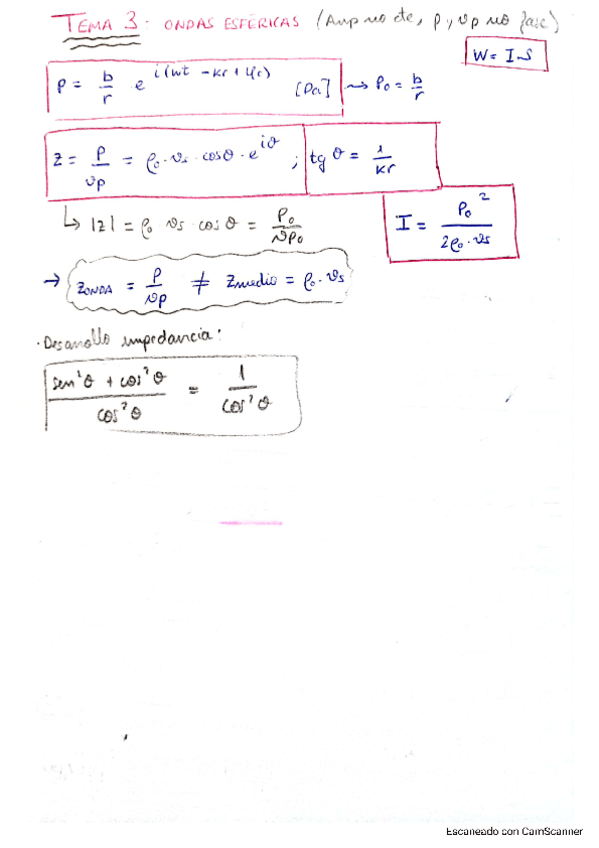 TEMA 3. ONDAS ESFÉRICAS (Amp no cte, p y vp no fase)
W = I·S
p = b/r e^i(wt - kr + φc) [Pa] → P₀ = b/r
Z = p/vp = ρ₀·vs·cosθ·e^iθ ; tg θ = 1/kr
↳ |z| = ρ₀ vs cosθ = P₀/vp₀
I = P₀²/2ρ₀·vs
→ ZONDA = p/vp ≠ Zmedio = ρ₀·vs
· Desarrollo impedancia:
sen²θ + cos²θ/cos²θ = 1/cos²θ
Escaneado con CamScanner